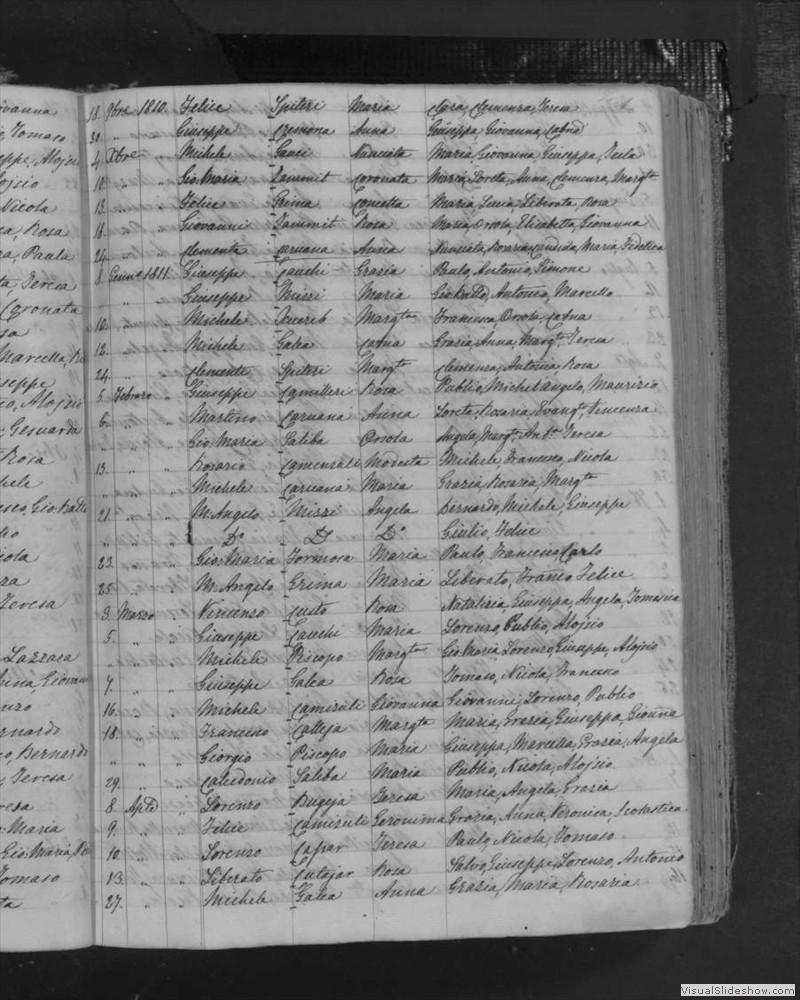 ovanna
Tomaso
Nicola
Rosa
Paula
Teresa
Coronata
Marcella
Gesuarda
Rosa
Teresa
Lazzara
Bernardo
Teresa
Maria
Gio Maria
Tomaso
18. 9bre 1810. Felice Spiteri Maria Clara, Clemenza, Teresa
30. " " Giuseppe Cremona Anna Giuseppa, Giovanna, Catna
4. Xbre " Michele Gauci Nunciata Maria, Giovanna, Giuseppa, Tecla
10. " " Gio. Maria Sammit Coronata Maria, Loreta, Anna, Clemenza, Margta
13. " " Felice Grima Maria, Lucia, Liberata, Rosa
18. " " Giovanni Sammit Rosa Maria, Orsola, Elisabetta, Giovanna
24. " " Clemente Caruana Anna Nunciata, Rosaria, Candida, Maria, Fidelica
8. 1811. Giuseppe Cauchi Grazia Paulo, Antonio, Simone
" " Giuseppe Mizzi Maria Antonio, Marcello
10. " " Michele Xuereb Margta Francesca, Orsola, Catna
12. " " Michele Galea Catna Grazia, Anna, Margta, Teresa
24. " " Clemente Spiteri Margta Clemenza, Antonia, Rosa
5. Febraro " Giuseppe Camilleri Rosa Publio, Michelangelo, Maurizio
6. " " Martino Caruana Anna Loreta, Rosaria, Vincenza
" " Gio. Maria Saliba Orsola Angela, Margta, Teresa
13. " " Rosario Modesta Michele, Francesco, Nicola
" " Michele Caruana Maria Grazia, Rosaria, Margta
21. " " M. Angelo Mizzi Angela Bernardo, Michele, Giuseppe
" " Do Do Do Giulio, Felice
23. " " Gio. Maria Formosa Maria Paulo, Francesco, Carlo
25. " " M. Angelo Grima Maria Liberato, Franco, Felice
3. Marzo " Vincenzo Custo Rosa Natalizia, Giuseppa, Angela, Tomasia
5. " " Giuseppe Cauchi Maria Lorenzo, Publio, Alojsio
" " Michele Piscopo Margta Gio. Maria, Lorenzo, Giuseppe, Alojsio
7. " " Giuseppe Galea Rosa Tomaso, Nicola, Francesco
16. " " Michele Giovanna Giovanni, Lorenzo, Publio
18. " " Francesco Calleja Margta Maria, Grazia, Giuseppa, Gionna
" " Giorgio Piscopo Maria Giuseppa, Marcella, Grazia, Angela
29. " " Calcidonio Saliba Maria Publio, Nicola, Alojsio
8. Aple " Lorenzo Bugeja Teresa Maria, Angela, Grazia
9. " " Felice Geronima Grazia, Anna, Veronica, Scolastica
10. " " Lorenzo Capar Teresa Paulo, Nicola, Tomaso
13. " " Liberato Cutajar Rosa Salvo, Giuseppe, Lorenzo, Antonio
27. " " Michele Galea Anna Grazia, Maria, Rosaria
VisualSlideshow.com